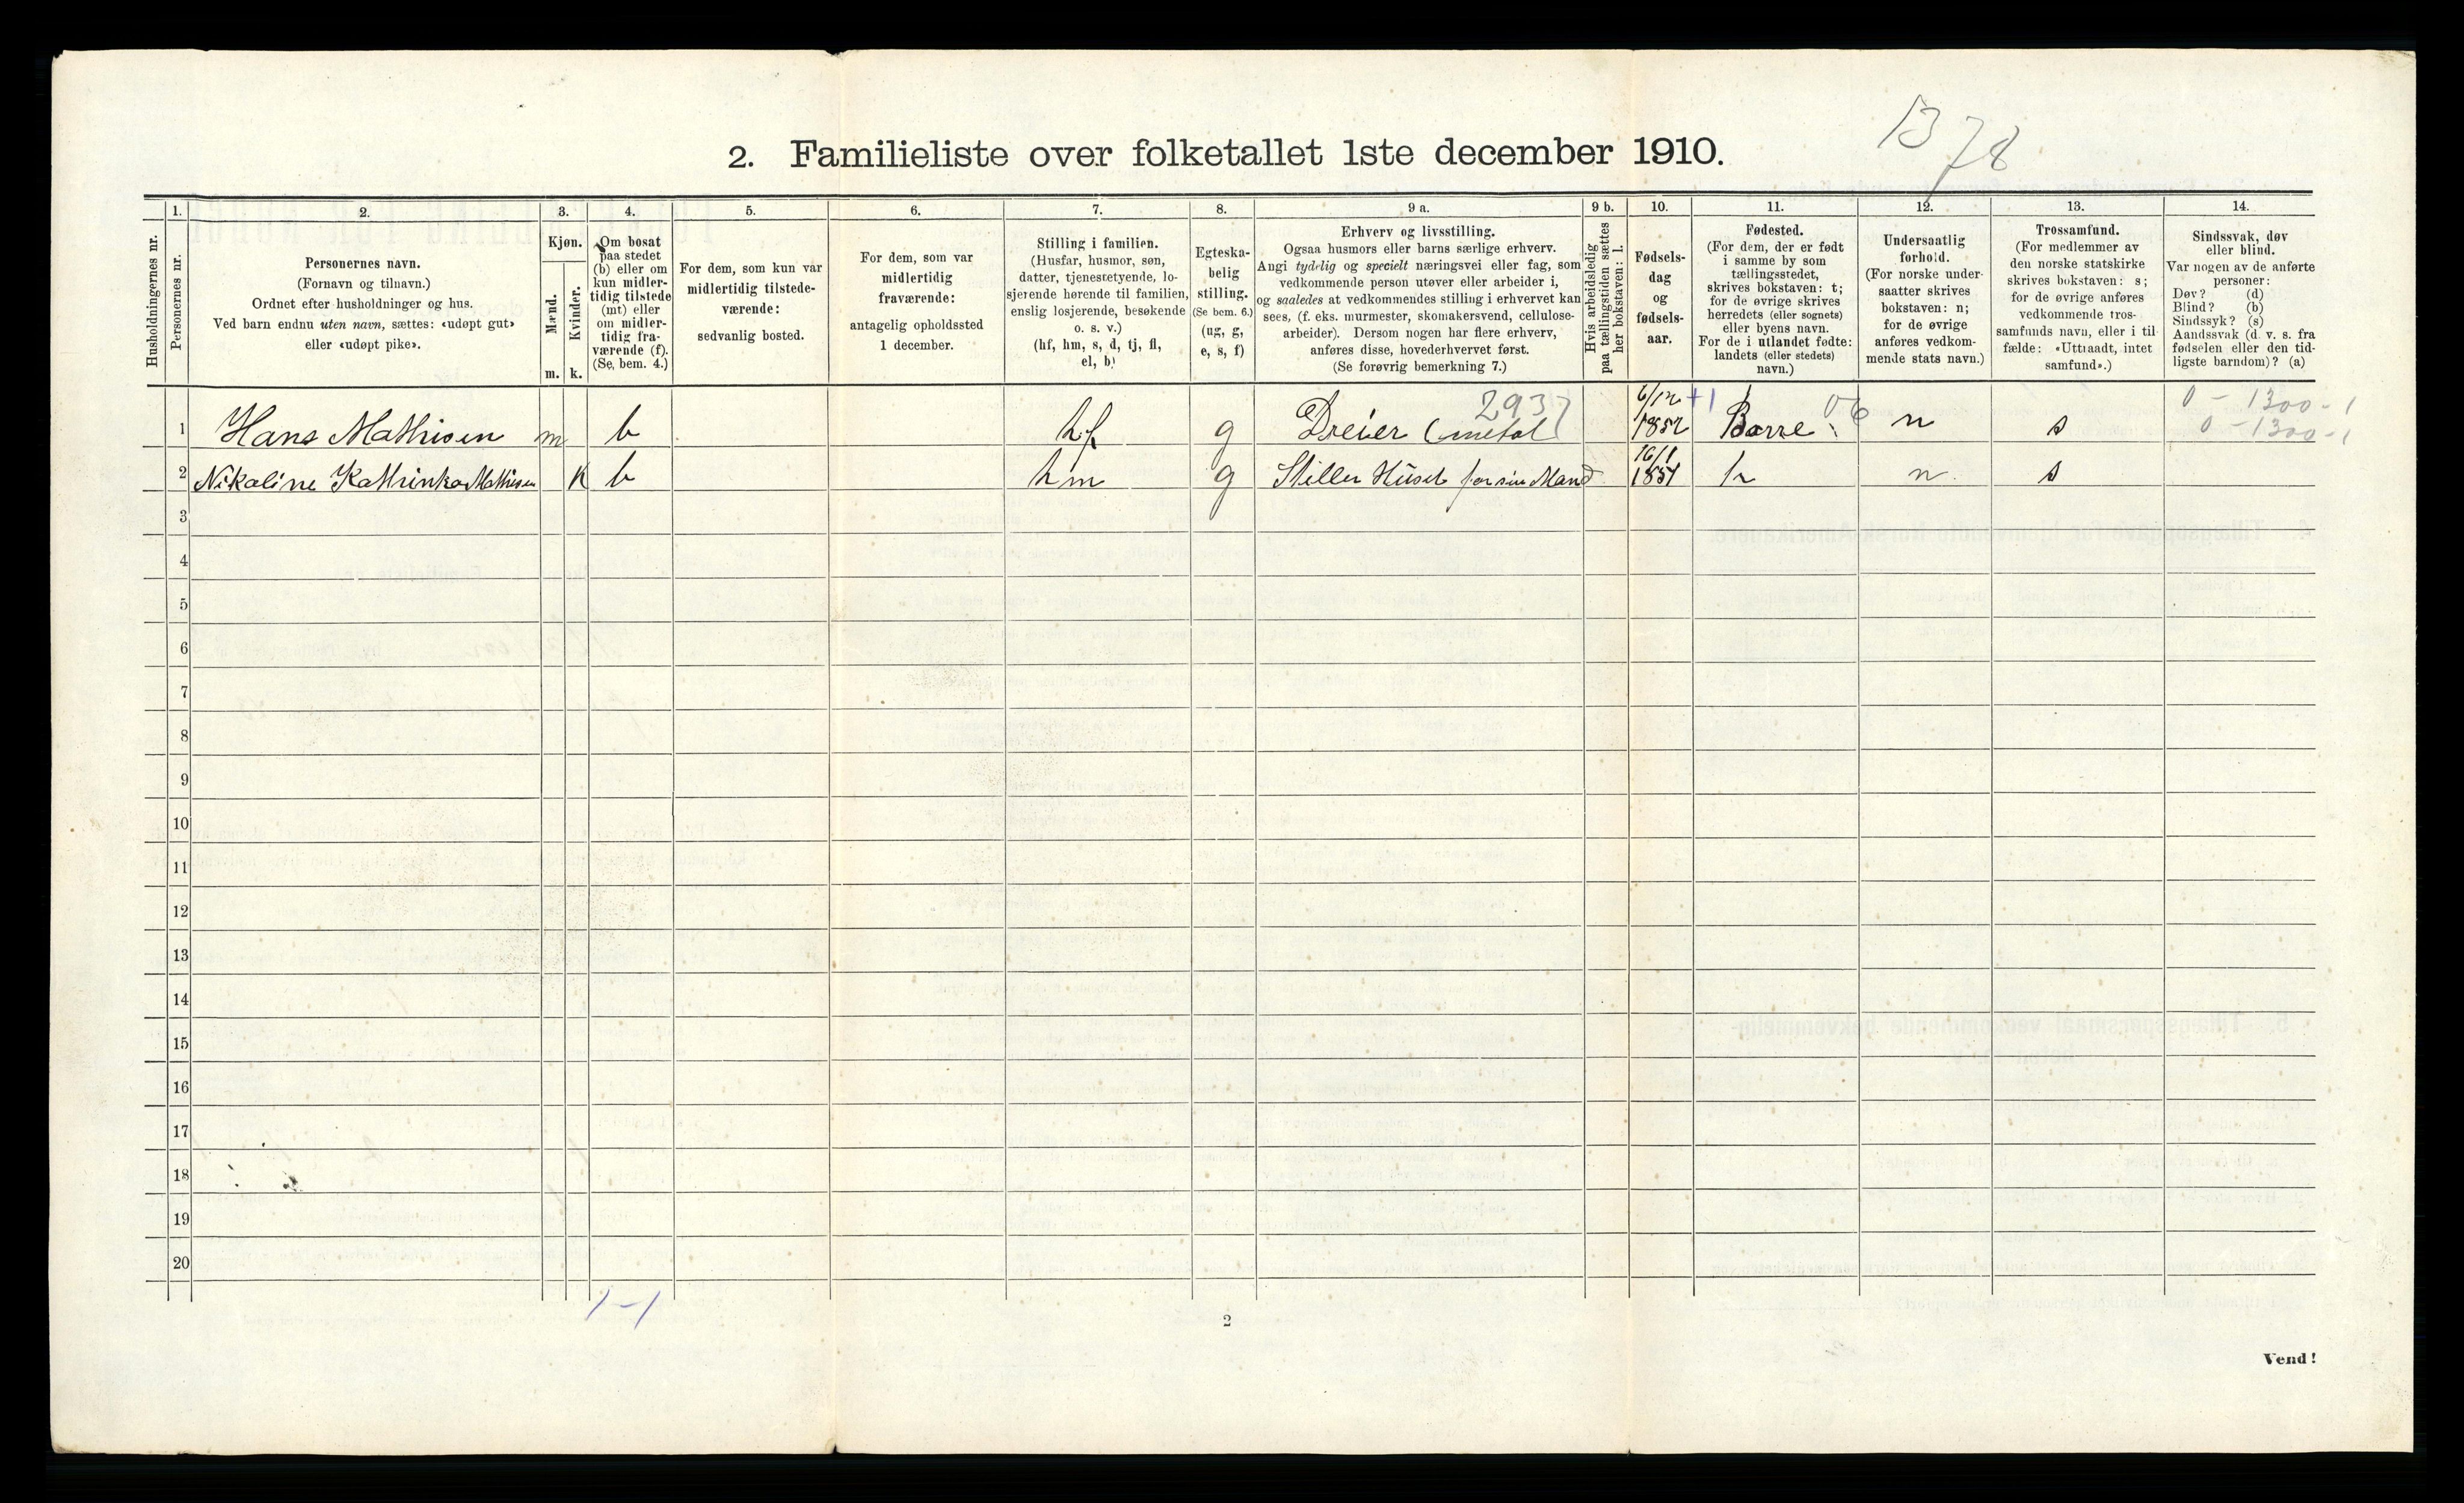 B 78
2. Familieliste over folketallet 1ste december 1910.
Husholdningernes nr.
1.
Personernes nr.
2.
Personernes navn.
(Fornavn og tilnavn.)
Ordnet efter husholdninger og hus.
Ved barn endnu uten navn, sættes: «udøpt gut»
eller «udøpt pike».
3.
Kjøn.
Mænd.
m.
Kvinder.
k.
4.
Om bosat
paa stedet
(b) eller om
kun midler-
tidig tilstede
(mt) eller
om midler-
tidig fra-
værende (f).
(Se. bem. 4.)
5.
For dem, som kun var
midlertidig tilstede-
værende:
sedvanlig bosted.
6.
For dem, som var
midlertidig
fraværende:
antagelig opholdssted
1 december.
7.
Stilling i familien.
(Husfar, husmor, søn,
datter, tjenestetyende, lo-
sjerende hørende til familien,
enslig losjerende, besøkende
o. s. v.)
(hf, hm, s, d, tj, fl,
el, b)
8.
Egteska-
belig
stilling.
(Se bem. 6.)
(ug, g,
e, s, f)
9 a.
Erhverv og livsstilling.
Ogsaa husmors eller barns særlige erhverv.
Angi tydelig og specielt næringsvei eller fag, som
vedkommende person utøver eller arbeider i,
og saaledes at vedkommendes stilling i erhvervet kan
sees, (f. eks. murmester, skomakersvend, cellulose-
arbeider). Dersom nogen har flere erhverv,
anføres disse, hovederhvervet først.
(Se forøvrig bemerkning 7.)
9 b.
Hvis arbeidsledig
paa tællingstiden sættes
her bokstaven: l.
10.
Fødsels-
dag
og
fødsels-
aar.
11.
Fødested.
(For dem, der er født
i samme by som
tællingsstedet,
skrives bokstaven: t;
for de øvrige skrives
herredets (eller sognets)
eller byens navn.
For de i utlandet fødte:
landets (eller stedets)
navn.)
12.
Undersaatlig
forhold.
(For norske under-
saatter skrives
bokstaven: n;
for de øvrige
anføres vedkom-
mende stats navn.)
13.
Trossamfund.
(For medlemmer av
den norske statskirke
skrives bokstaven: s;
for de øvrige anføres
vedkommende tros-
samfunds navn, eller i til-
fælde: «Uttraadt, intet
samfund».)
14.
Sindssvak, døv
eller blind.
Var nogen av de anførte
personer:
Døv? (d)
Blind? (b)
Sindssyk? (s)
Aandssvak (d. v. s. fra
fødselen eller den tid-
ligste barndom)? (a)
1 Hans Mathisen m b hf g Dreier (metal) 2937 6/12 1852 +1 Borre 06 n s 0 - 1300 - 1
0 - 1300 - 1
2 Nikoline Kathinka Mathisen K b hm g Steller Huset for sin Mand 16/1 1851 n s
3
4
5
6
7
8
9
10
11
12
13
14
15
16
17
18
19
20
1-1
2
Vend!